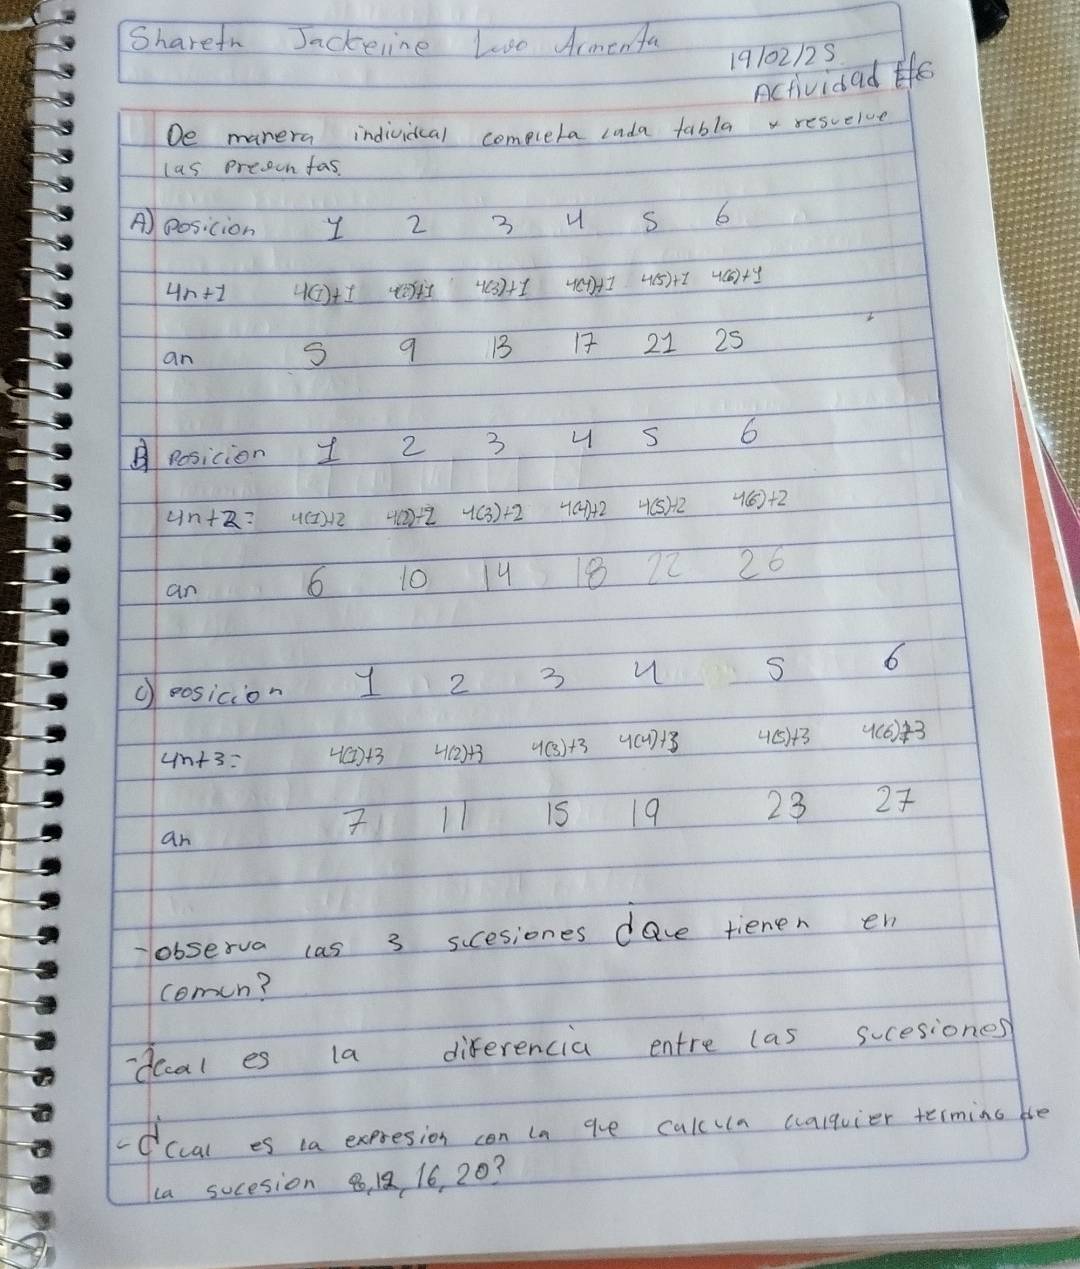 Shareth Jackeline Armenta
19/02/25
Actividad #6
De manera individual completa cada tabla y resuelve
las preguntas.
A) posicion 1 2 3 4 5 6
4n+1 4(1)+1 4(2)+1 4(3)+1 4(4)+1 4(5)+1 4(6)+1
an 5 9 13 17 21 25
B) Posicion 1 2 3 4 5 6
4n+2= 4(1)+2 4(2)+2 4(3)+2 4(4)+2 4(5)+2 4(6)+2
an 6 10 14 18 22 26
C) posicion 1 2 3 4 5 6
4n+3= 4(1)+3 4(2)+3 4(3)+3 4(4)+3 4(5)+3 4(6)+3
an 7 11 15 19 23 27
-observa las 3 sucesiones ¿Que tienen en
comun?
-¿cual es la diferencia entre las sucesiones
-¿cual es la expresion con la que calcula cualquier termino de
la sucesion 8, 12, 16, 20?